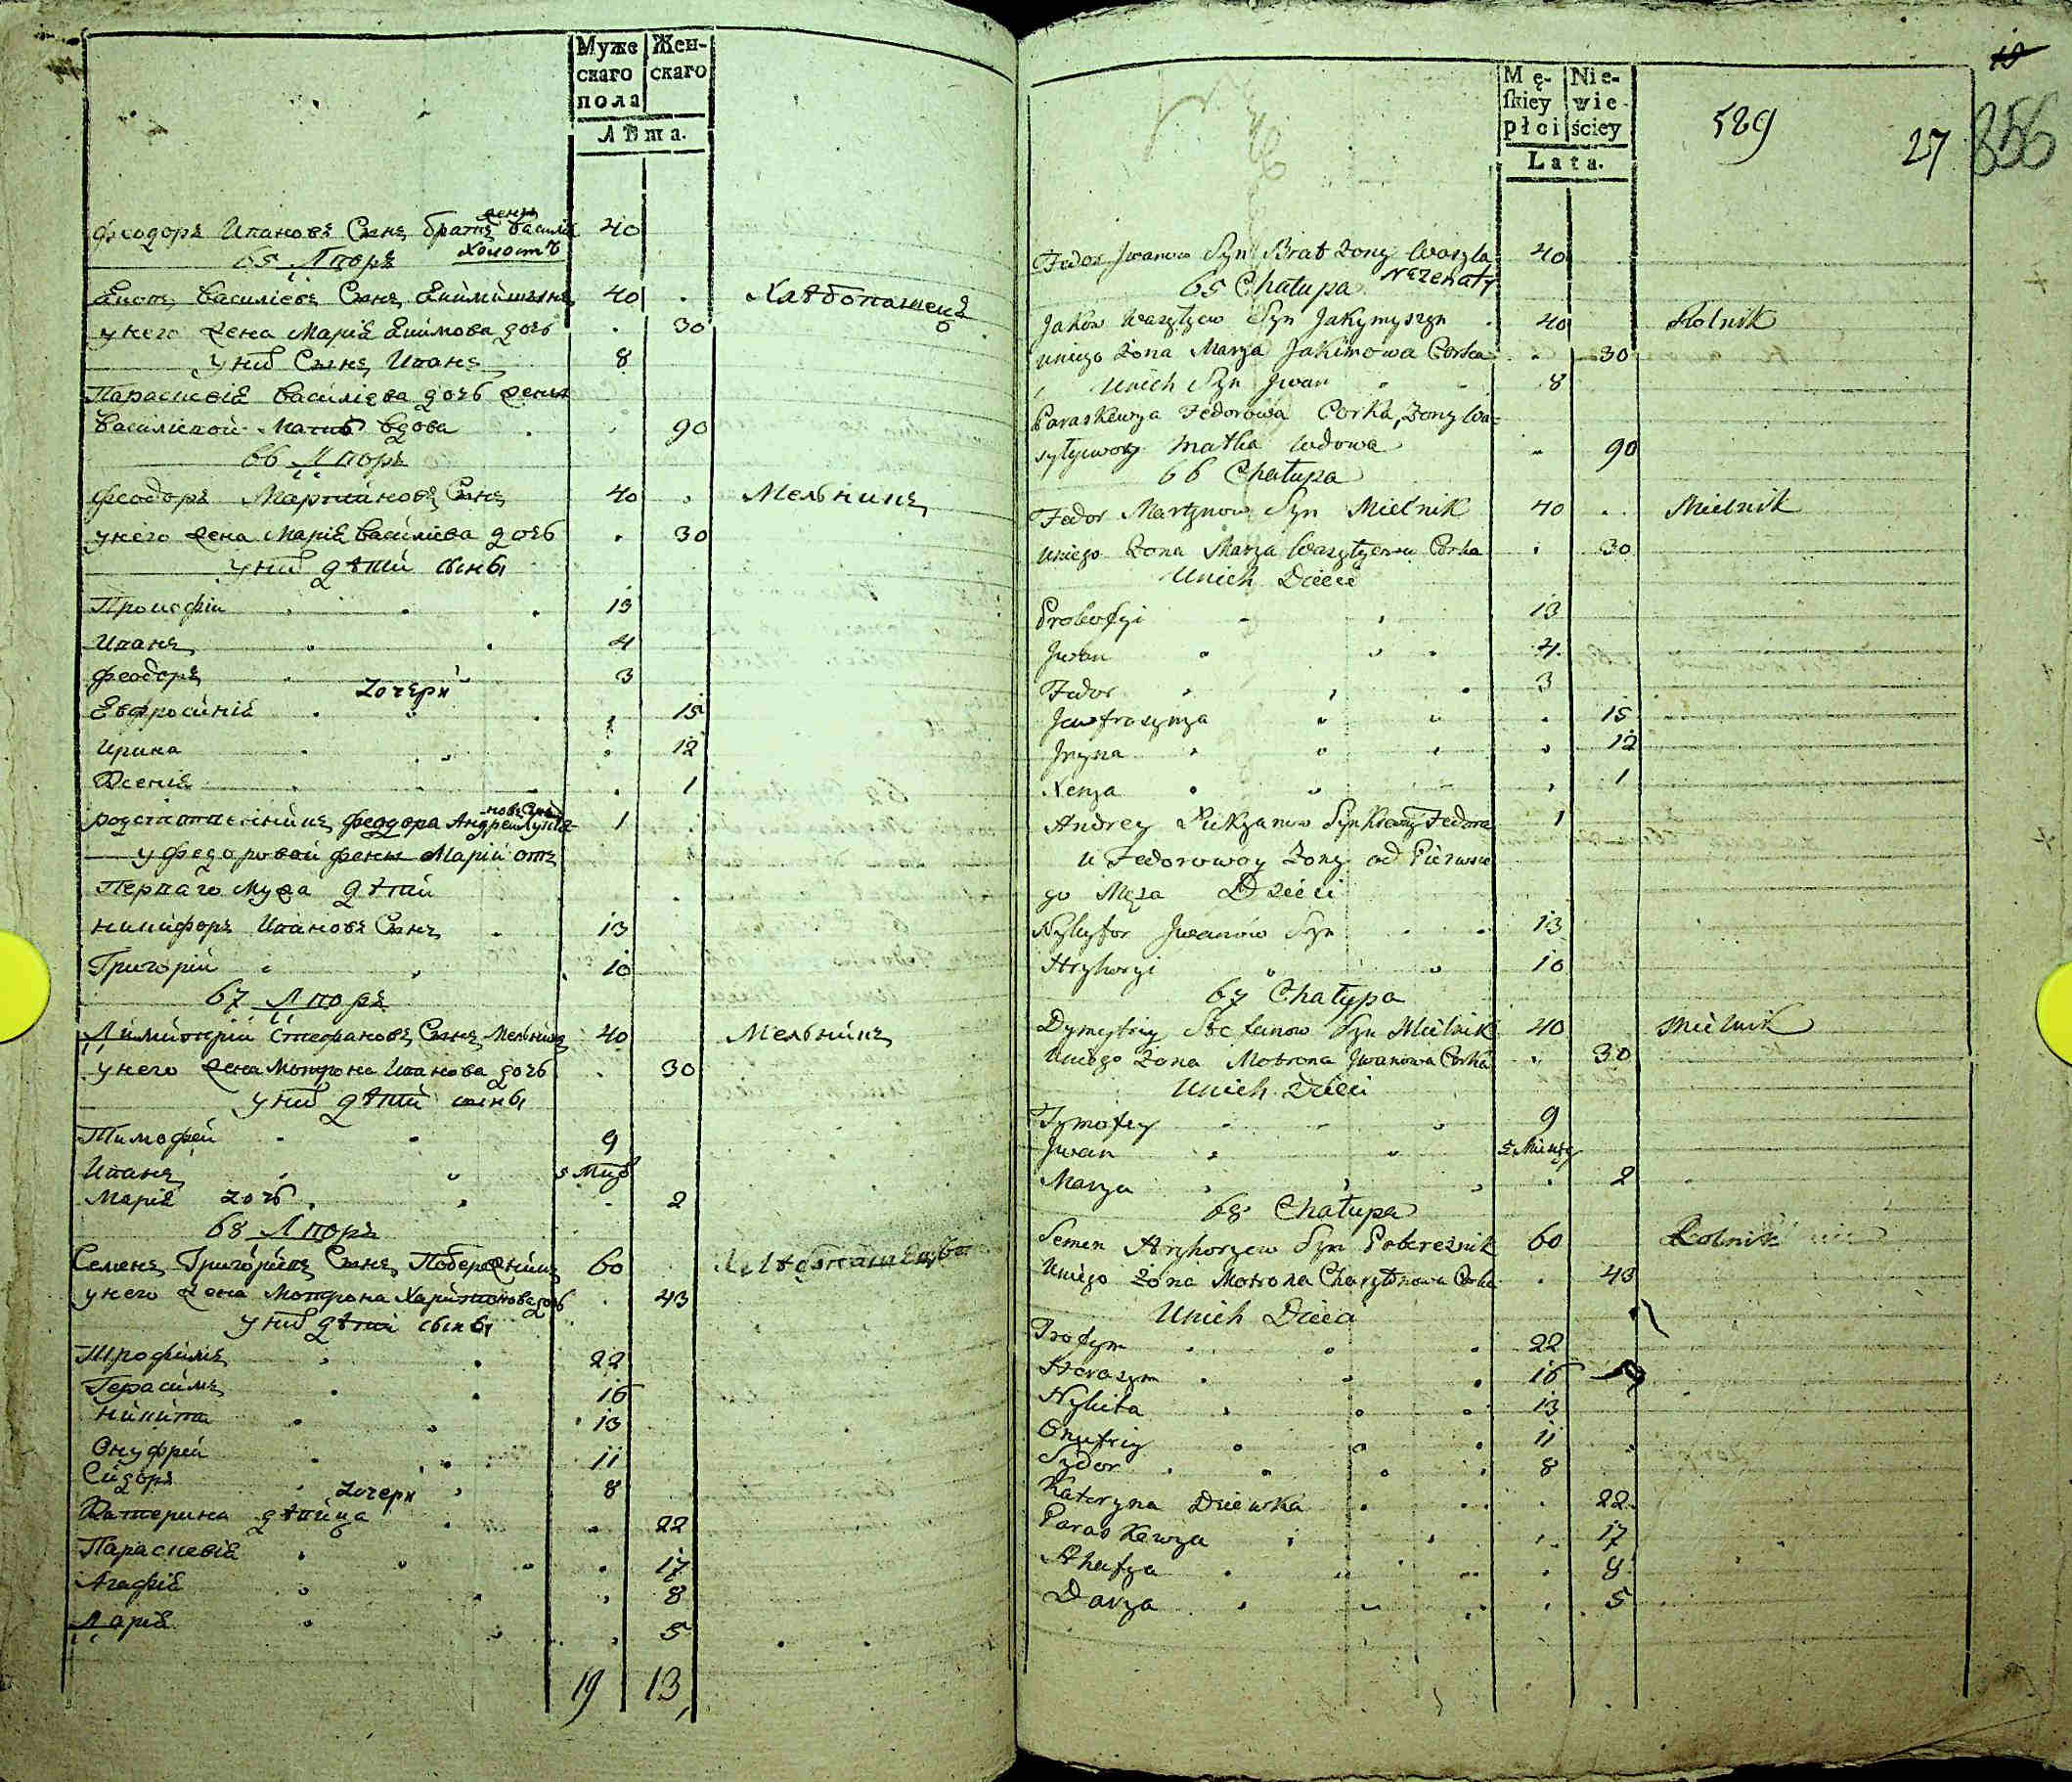 Муже Жен-
скаго скаго
пола
Лѣта.
Феодоръ Ивановъ Сынъ братъ жены Василія 40
65 Дворъ холостъ
Яковъ Василіевъ Сынъ Якимишынъ 40 Хлѣбопашецъ
у него жена Марія Якимова дочь 30
у них Сынъ Иванъ 8
Параскевія Василіева дочь жены
Василіевой Мать вдова 90
66 Дворъ
Феодоръ Мартиновъ Сынъ 40 Мельникъ
у него жена Марія Василіева дочь 30
у них дѣтей сыны
Прокофій 13
Иванъ 4
Феодоръ 3
дочери
Евфросинія 15
Ирина 12
Ксенія 1
родственникъ Феодора Андрей Лукія- 1
новъ Сынъ
у Федоровой жены Маріи отъ
Перваго мужа дѣтей
Никифоръ Ивановъ Сынъ 13
Григорій 10
67 Дворъ
Димитрій Стефановъ Сынъ Мельникъ 40 Мельникъ
у него жена Мотрона Иванова дочь 30
у них дѣтей сыны
Тимофей 9
Иванъ
Марія дочь 2
68 Дворъ
Семенъ Григорьевъ Сынъ Побережникъ 60
у него жена Мотрона Харитонова дочь 43
у них дѣтей сыны
Трофимъ 22
Герасимъ 16
Никита 13
Онуфрей 11
Сидоръ 8
дочери
Катерина дѣвица 22
Параскевія 17
Агафія 8
Дарія 5
19 13
Mę- Nie-
skiey wie-
płci ściey
Lata.
589
27
856
19
Fedor Jwanow Syn Brat Zony Wasyla 40
65 Chałupa Nezenaty
Jakow Wasylyew Syn Jakymyszyn 40 Rolnik
Uniego Zona Marya Jakimowa Corka 30
Unich Syn Jwan 8
Paraskewya Fedorowa Corka, Zony Wa-
sylyiwoy Matka wdowa 90
66 Chałupa
Fedor Martynow Syn Mielnik 40 Mielnik
Uniego Zona Marya Wasylyewa Corka 30
Unich Dzieci
Prokofyi 13
Jwan 4
Fedor 3
Jewfrosynya 15
Jryna 12
Xenya 1
Andrey Łukyanow Syn Krewny Fedora 1
u Fedorowoy Zony od Pierwsze
go Męza Dzieci
Nykyfor Jwanow Syn 13
Hryhoryi 10
67 Chałypa
Dymytriy Stefanow Syn Mielnik 40 Mielnik
Uniego Zona Motrona Jwanowa Corka 30
Unich Dzieci
Tymofey 9
Jwan
Marya 2
68 Chałupa
Semen Hryhoryew Syn Pobereznik 60 Rolnik
Uniego Zona Motrona Charytonowa Corka 43
Unich Dzieci
Trofym 22
Herasym 16
Nykita 13
Onufriy 11
Sydor 8
Kateryna Dziewka 22
Paraskewya 17
Ahafya 8
Darya 5